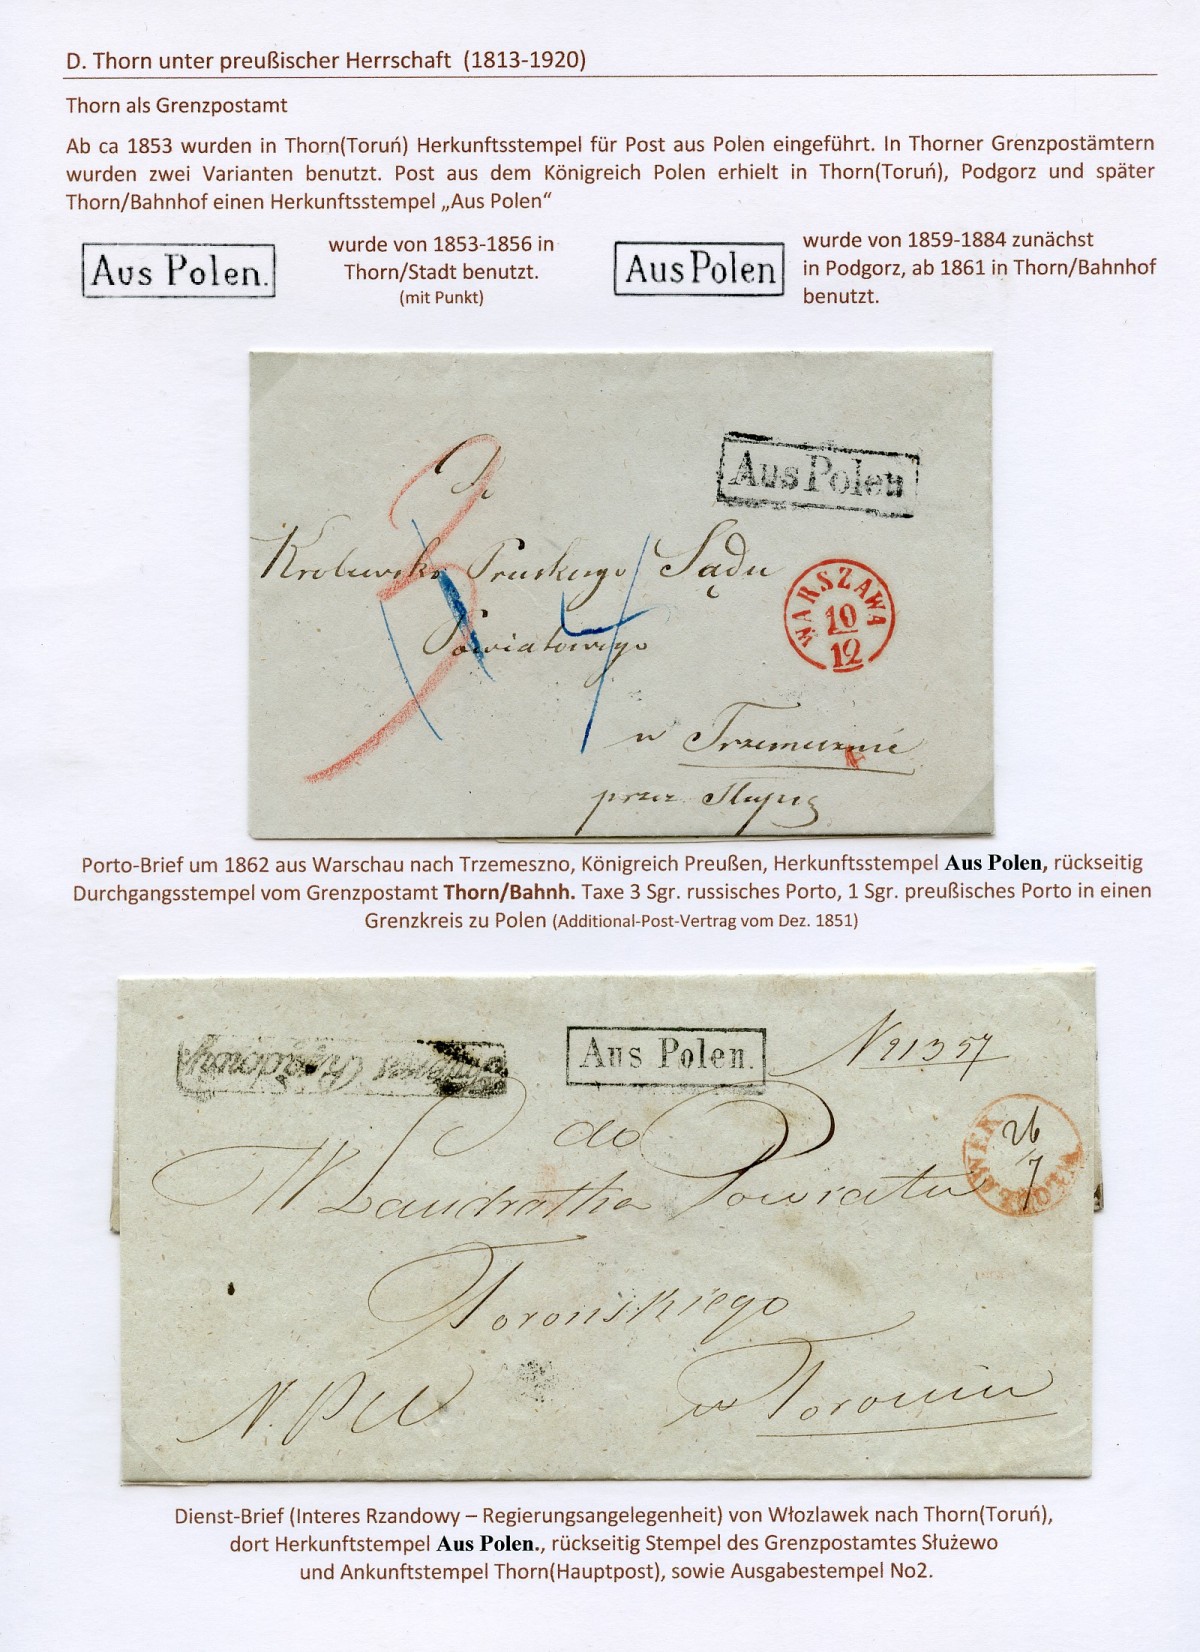 D. Thorn unter preußischer Herrschaft (1813-1920)
Thorn als Grenzpostamt
Ab ca 1853 wurden in Thorn(Toruń) Herkunftsstempel für Post aus Polen eingeführt. In Thorner Grenzpostämtern
wurden zwei Varianten benutzt. Post aus dem Königreich Polen erhielt in Thorn(Toruń), Podgorz und später
Thorn/Bahnhof einen Herkunftsstempel „Aus Polen“
Aus Polen.
wurde von 1853-1856 in
Thorn/Stadt benutzt.
(mit Punkt)
Aus Polen
wurde von 1859-1884 zunächst
in Podgorz, ab 1861 in Thorn/Bahnhof
benutzt.
Aus Polen
3
Do
Krolewsko Pruskiego Sądu
Powiatowego
4
WARSZAWA
10
12
w Trzemesznie
przez Słupcę
Porto-Brief um 1862 aus Warschau nach Trzemeszno, Königreich Preußen, Herkunftsstempel Aus Polen, rückseitig
Durchgangsstempel vom Grenzpostamt Thorn/Bahnh. Taxe 3 Sgr. russisches Porto, 1 Sgr. preußisches Porto in einen
Grenzkreis zu Polen (Additional-Post-Vertrag vom Dez. 1851)
Interes Rządowy
Aus Polen.
N 21357
do
W Landratha Powiatu
26
7
Toronskiego
w Toroniu
Dienst-Brief (Interes Rzandowy – Regierungsangelegenheit) von Włozlawek nach Thorn(Toruń),
dort Herkunftstempel Aus Polen., rückseitig Stempel des Grenzpostamtes Służewo
und Ankunftstempel Thorn(Hauptpost), sowie Ausgabestempel No2.